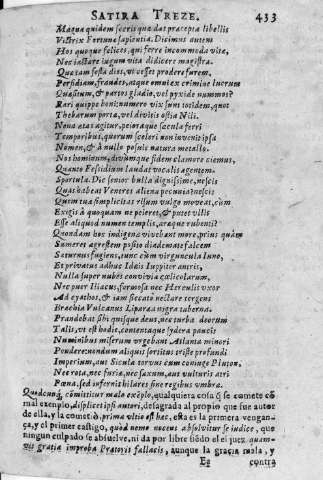 SATIRA TREZE. 433
Magna quidem sacris quæ dat præcepta libellis
Victrix Fortunæ sapientia. Dicimus autem
Hos quoque felices, qui ferre incommoda vitæ,
Nec iactare iugum vita didicere magistra.
Quæ tam festa dies, ut cesset prodere furem,
Perfidiam, fraudes, atque omni ex crimine lucrum
Quæsitum, & partos gladio, vel pyxide nummos?
Rari quippe boni: numero vix sunt totidem, quot
Thebarum portæ, vel divitis ostia Nili.
Nona ætas agitur, peioraque sæcula ferri
Temporibus, quorum sceleri non invenit ipsa
Nomen, & à nullo posuit natura metallo.
Nos hominum, divumque fidem clamore ciemus,
Quanto Fesidium laudat vocalis agentem
Sportula. Dic senior bulla dignissime, nescis
Quas habeat Veneres aliena pecunia? nescis
Quem tua simplicitas risum vulgo moveat, cùm
Exigis à quoquam ne peieret, & putet ullis
Esse aliquod numen templis, aræque rubenti?
Quondam hoc indigenæ vivebant more, prius quàm
Sumeret agrestem posito diademate falcem
Saturnus fugiens, tunc cùm virguncula Iuno,
Et privatus adhuc Idæis Iuppiter antris,
Nulla super nubes convivia cælicolarum,
Nec puer Iliacus, formosa nec Herculis uxor
Ad cyathos, & iam siccato nectare tergens
Brachia Vulcanus Liparæa nigra taberna.
Prandebat sibi quisque deus, nec turba deorum
Talis, ut est hodie, contentaque sydera paucis
Numinibus miserum urgebant Atlanta minori
Pondere: nondum aliquis sortitus triste profundi
Imperium, aut Sicula torvus cum coniuge Pluton,
Nec rota, nec furiæ, nec saxum, aut vulturis atri
Pœna, sed infernis hilares sine regibus umbræ.
cõmittitur malo exẽplo, qualquiera cosa q̃ se comete cõ
mal exemplo, displicet ipsi autori, desagrada al propio que fue autor
de ella, y la cometiò, prima ultio est hæc, esta es la primera vengan-
ça, y el primer castigo, quòd nemo nocens absolvitur se iudice, que
ningun culpado se absuelve, ni da por libre siẽdo el el juez quam-
vis gratia improba Prætoris fallacis, aunque la gracia mala, y
Ee contra